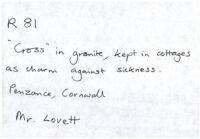 R 81
"Cross" in granite, kept in cottages
as charm against sickness.
Penzance, Cornwall
Mr. Lovett